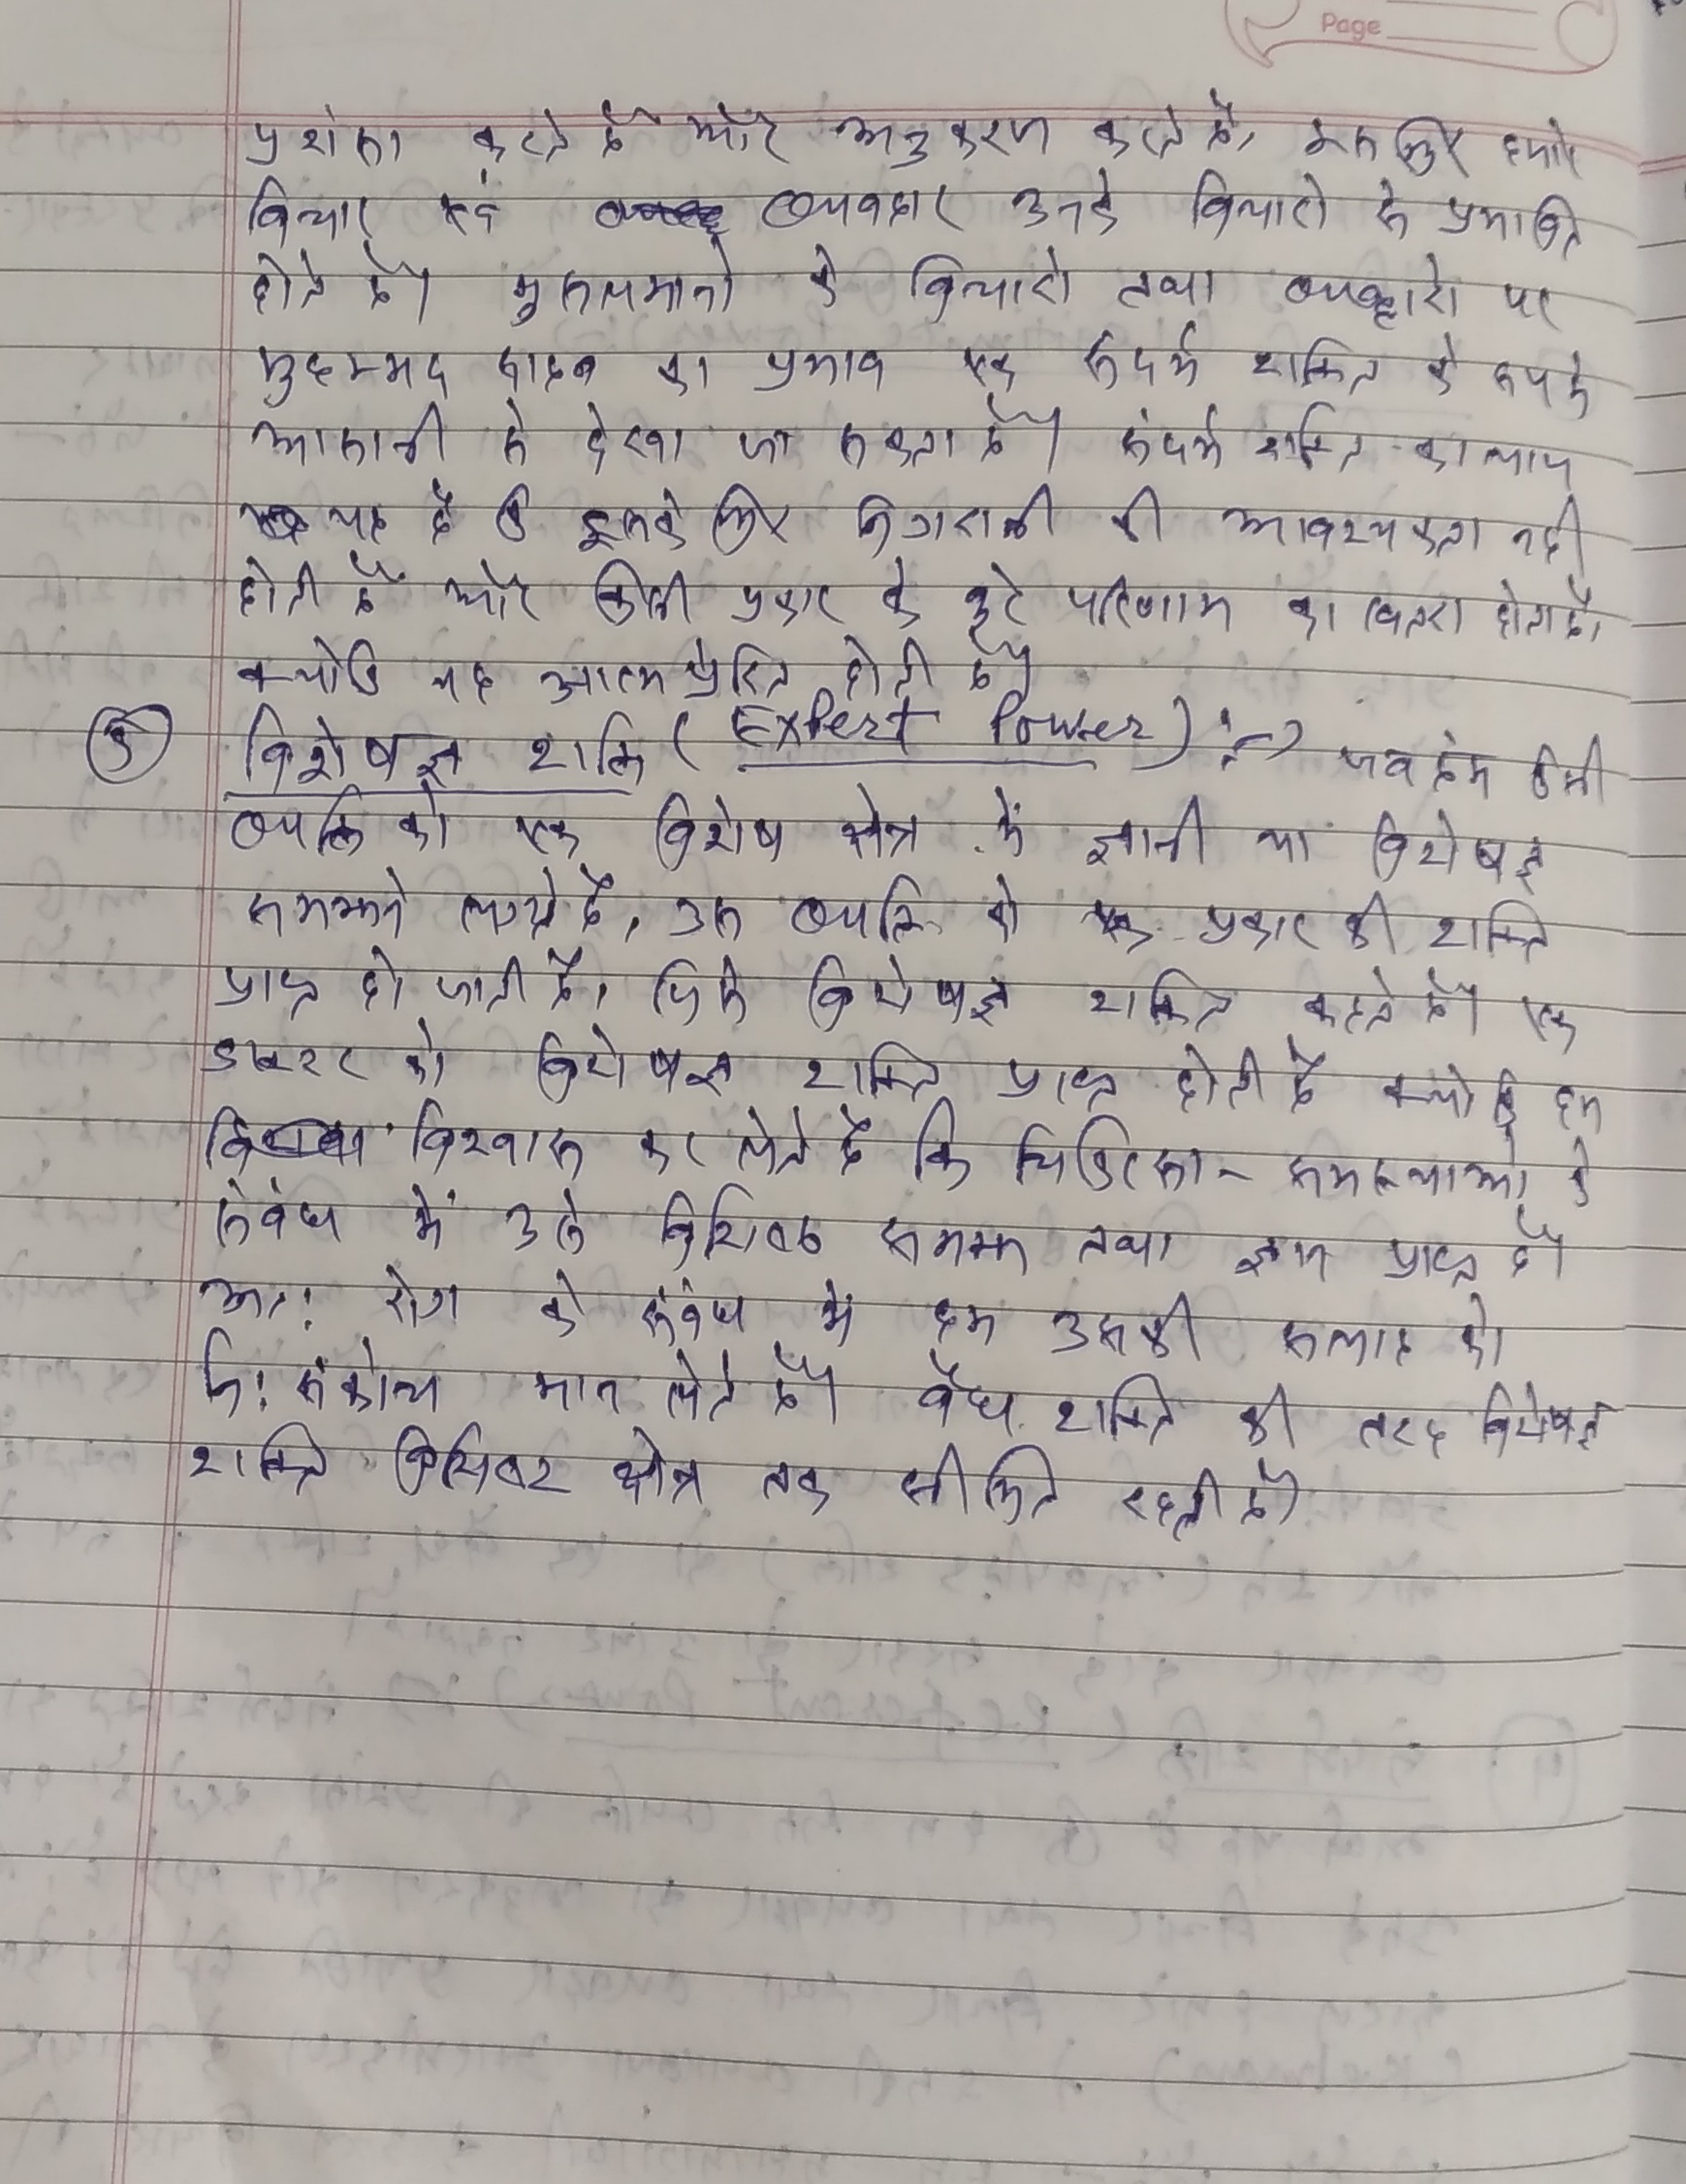 Page
प्रशंसा करते हैं और अनुकरण करते हैं, इसलिए हमारे
विचार एवं व्यवहार उनके विचारों से प्रभावित
होते हैं। मुसलमानो के विचारों तथा व्यवहारों पर
मुहम्मद साहब का प्रभाव एक संदर्भ शक्ति के रूप में
आसानी से देखा जा सकता है। संदर्भ शक्ति का लाभ
यह है कि इसके लिए निगरानी की आवश्यकता नहीं
होती है और किसी प्रकार के बुरे परिणाम का खतरा होता है,
क्योकि यह आत्मप्रेरित होती है।
5 विशेषज्ञ शक्ति (Expert Power) :-> जब हम किसी
व्यक्ति को एक विशेष क्षेत्र में ज्ञानी या विशेषज्ञ
समझने लगते है, उस व्यक्ति को एक प्रकार की शक्ति
प्राप्त हो जाती है, जिसे विशेषज्ञ शक्ति कहते है। एक
डाक्टर को विशेषज्ञ शक्ति प्राप्त होती है क्योकि हम
विश्वास कर लेते है कि चिकित्सा - समस्याओं के
संबंध में उसे विशिष्ठ समझ तथा ज्ञान प्राप्त है।
अतः रोग के संबंध में हम उसकी सलाह को
निः संकोच मान लेते है। वैध शक्ति की तरह विशेषज्ञ
शक्ति क्षेत्र तक सीमित रहती है।